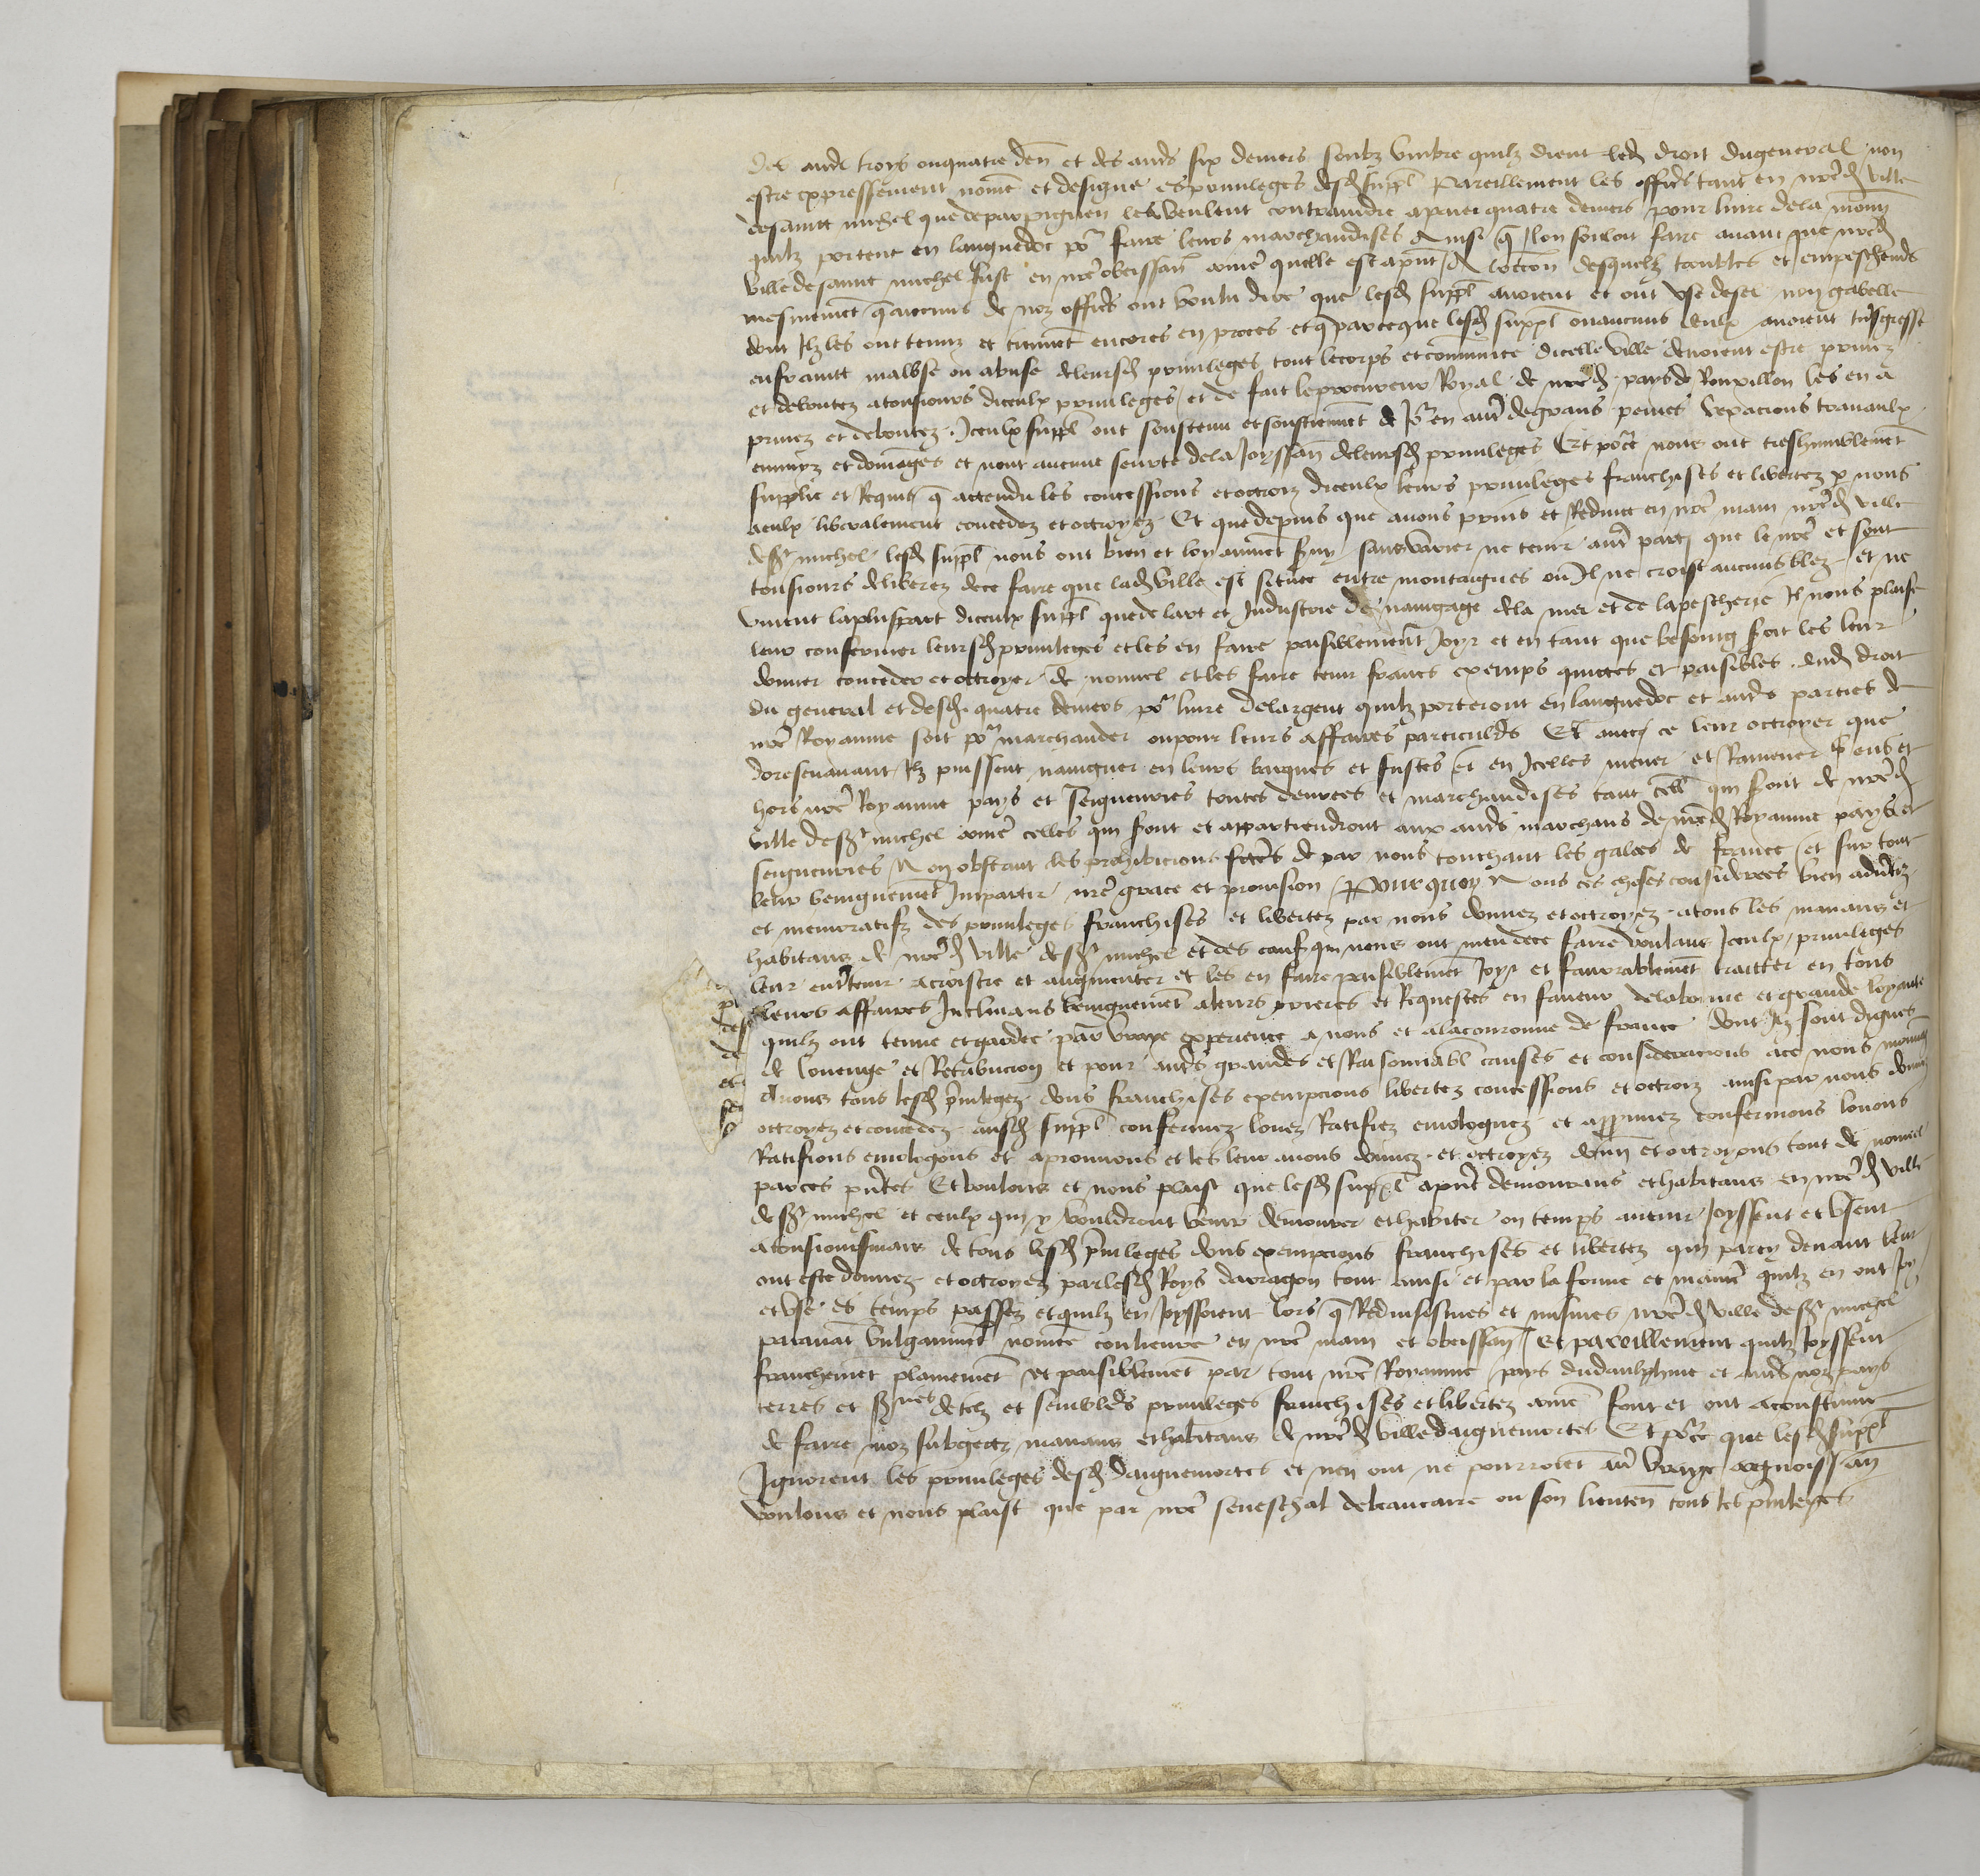 des audes troys ou quatre den̄ et des autres six deniers soubz vmbre quilz dient led droit du general non
estre expressement nom̄e et designe es priuileges desd suppl̄ Pareillement les offic̄s tant en nr̄ed ville
de saint michel que de parpignen les veulent contraindre a paier quatre deniers pour liure dela monn̄
quilz portent en languedoc po^r faire leurs marchandises Ainsi q̄ lon souloit faire auant que nr̄ed
ville de saint michel fust en nr̄e obeissan̄ com̄e quelle est apn̄t / A loccon̄ desquelz troubles et empeschem̄s
mesmement q̄ aucuns de noz offic̄s ont voulu dire que lesd suppl̄ auoient et ont vse desel non gabelle
dont Ilz les ont tenuz et tiennēt encores en proces et q̄ parceque lesd suppl̄ ou aucuns deulx auoient trāsgresse
enfraint malvse ou abuse deleursd priuileges tout le corps et com̄unite dicelle ville deuoient estre priuez
et deboutez a tousiours diceulx priuileges / et de fait le procureur Royal de nr̄ed pays de Roussillon les en a
priuez et deboutez Iceulx suppl̄ ont soustenu et soustiennēt de Jo^r en autr̄ de grans peines vexacions trauaulx
ennuyz et dom̄ages et nont aucune seurte dela Joyssan̄ deleursd priuileges Et po^rce nous ont treshumblemēt
supplie et Requis q̄ actendu les concessions et octroiz diceulx leurs priuileges franchises et libertez p nous
aeulx liberalement concedez et octroyez Et que depuis que auons prins et Reduite en nr̄e main nr̄ed ville
de s^t michel lesd suppl̄ nous ont bien et loyaumēt seruy sans varier ne tenir autr̄ party que le nr̄e et sont
tousiours deliberez dece faire que lad ville est situee entre montaignes ou Il ne croist aucuns blez et ne
viuent la pluspart diceulx suppl̄ que de lart et Industrie de nauigage dela mer et de la pescherie Il nous plaise
leur confermer leursd priuileges et les en faire paisiblement Joyr et en tant que besoing seroit les leur
donner conceder et octroyer de nouuel et les faire tenir francs exemps quictes et paisibles dud droit
du general et desd quatre deniers po^r liure delargent quilz porteront en languedoc et autres parties de
nr̄e Royaume soit po^r marchander ou pour leurs affaires particuliers Et auec ce leur octroyer que
doresenauant Ilz puissent nauiguer en leurs barques et fustes et en Icelles mener et Ramener ens et
hors nr̄e Royaume pays et seigneuries toutes denrees et marchandises tant cell̄ qui sont de nr̄ed
ville de s^t michel com̄e celles qui sont et appartiendront aux autres marchans de nr̄ed Royaume pays et
seigneuries Non obstant les prohibicions fctēs de par nous touchant les galees de france et sur tout
leur benignemēt Impartir nr̄e grace et prouision Pourquoy Nous ces choses considerees bien aduertiz
et memoratifz des priuileges franchises et libertez par nous donnez et octroyez a tous les manans et
habitans de nr̄ed ville de s^t michel et des causes qui nous ont meu dece faire voulans Iceulx priuileges
leur entretenir acroistre et augmenter et les en faire paisiblemēt Joyr et fauorablemēt traitter en tous
leurs affaires Inclinans benignemēt aleurs prieres et Requestes en faueur dela bonne et grande loyaute
quilz ont tenue et gardee par vraye experience a nous et ala couronne de france dont Ilz sont dignes
de louenge et Retribucion et pour autres grandes et Raisonnabl̄ causes et consideracions ace nous mouuans
Auons tous lesd p̄uileges dons franchises exempcions libertez concessions et octroiz ainsi par nous donnez
octroyez et concedez ausd suppl̄ confermez louez Ratifiez emologuez et approuuez confermons louons
Ratifions emologons et aprouuons et les leur auons donnez et octroyez donn̄ et octroyons tout de nouuel
par ces pn̄tes Et voulons et nous plaist que lesd suppl̄ apn̄t demourans et habitans en nr̄ed ville
de s^t michel et ceulx qui y vouldront venir demourer et habiter ou temps auenir Joyssent et vsent
a tousioursmais de tous lesd p̄uileges dons exempcions franchises et libertez qui parcy deuant leur
ont este donnez et octroyez par lesd Roys darragon tout ainsi et par la forme et manier̄ quilz en ont Joy
et vse es temps passez et quilz en Joyssoient lors q̄ Reduisismes et mismes nr̄ed ville de s^t michel
parauāt vulgairmēt nom̄ee coulieuure en nr̄e main et obeissan̄ Et pareillement quilz Joyssent
franchemēt plainemēt et paisiblemēt par tout nr̄e Royaume pays du daulphine et autres noz pays
terres et s^ries de telz et semblables priuileges franchises et libertez com̄e font et ont acoustume
de faire noz subgectz manans et habitans de nr̄ed ville daiguemortes Et po^rce que lesd suppl̄
Ignorent les priuileges desd daiguemortes et nen ont ne pourroiet auoir vraye cognoissan̄
voulons et nous plaist que par nr̄e seneschal de beaucaire ou son lieuten̄ tous les p̄uileges